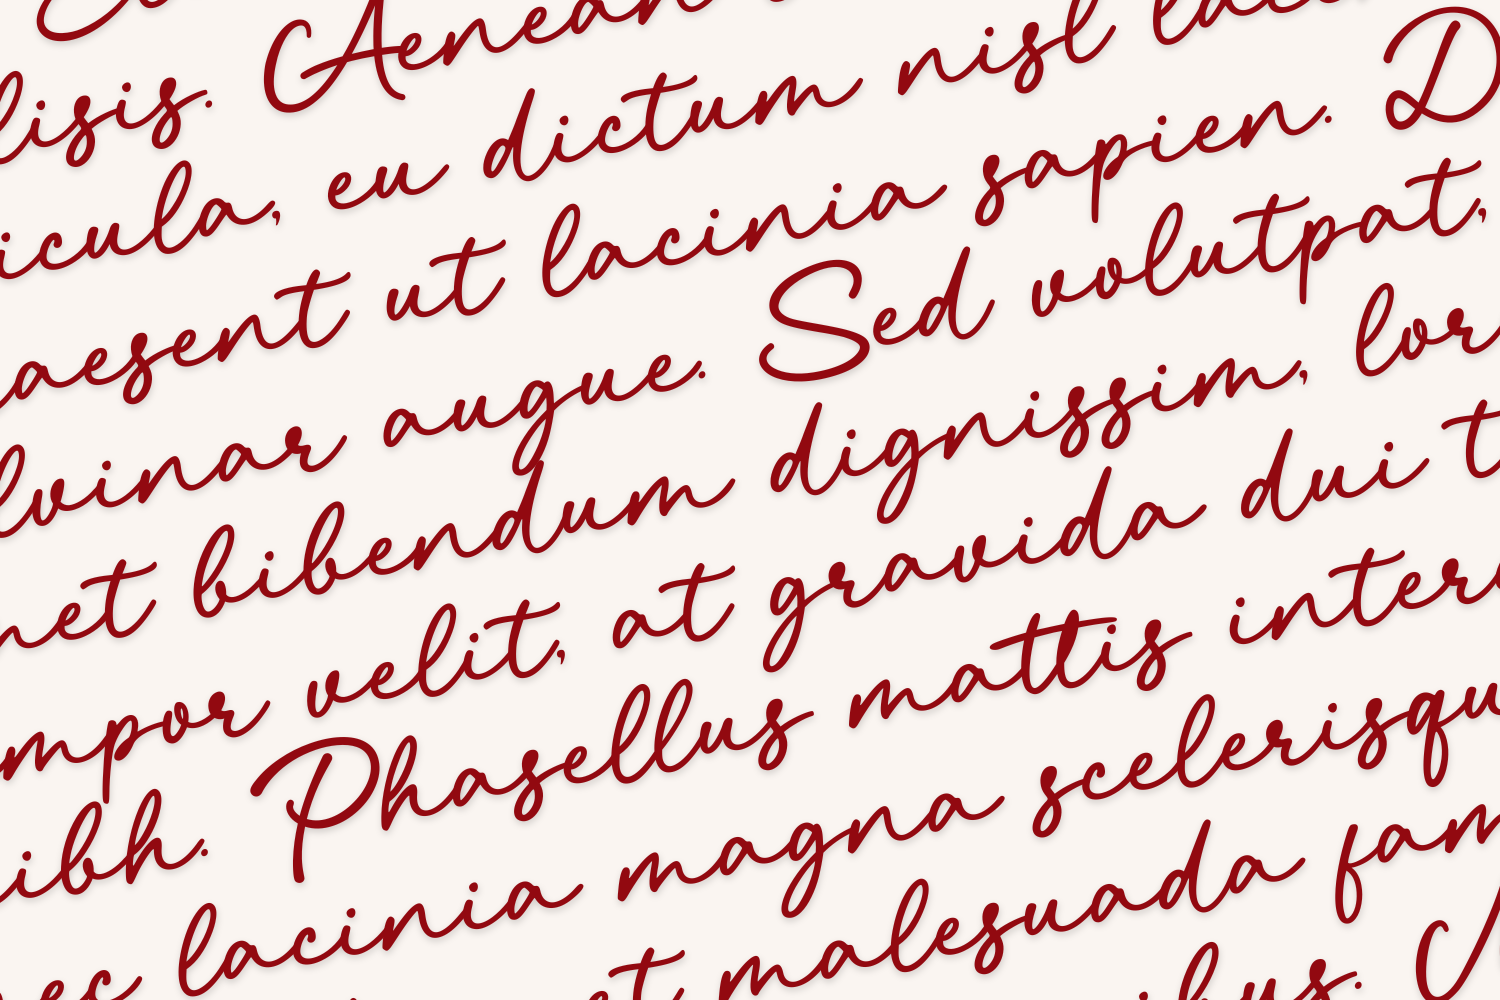 lisis. Aenean
icula, eu dictum nisl
aesent ut lacinia sapien. D
lvinar augue. Sed volutpat,
net bibendum dignissim, lor
mpor velit, at gravida dui t
ibh. Phasellus mattis inter
ec lacinia magna scelerisqu
et malesuada fam
bus.